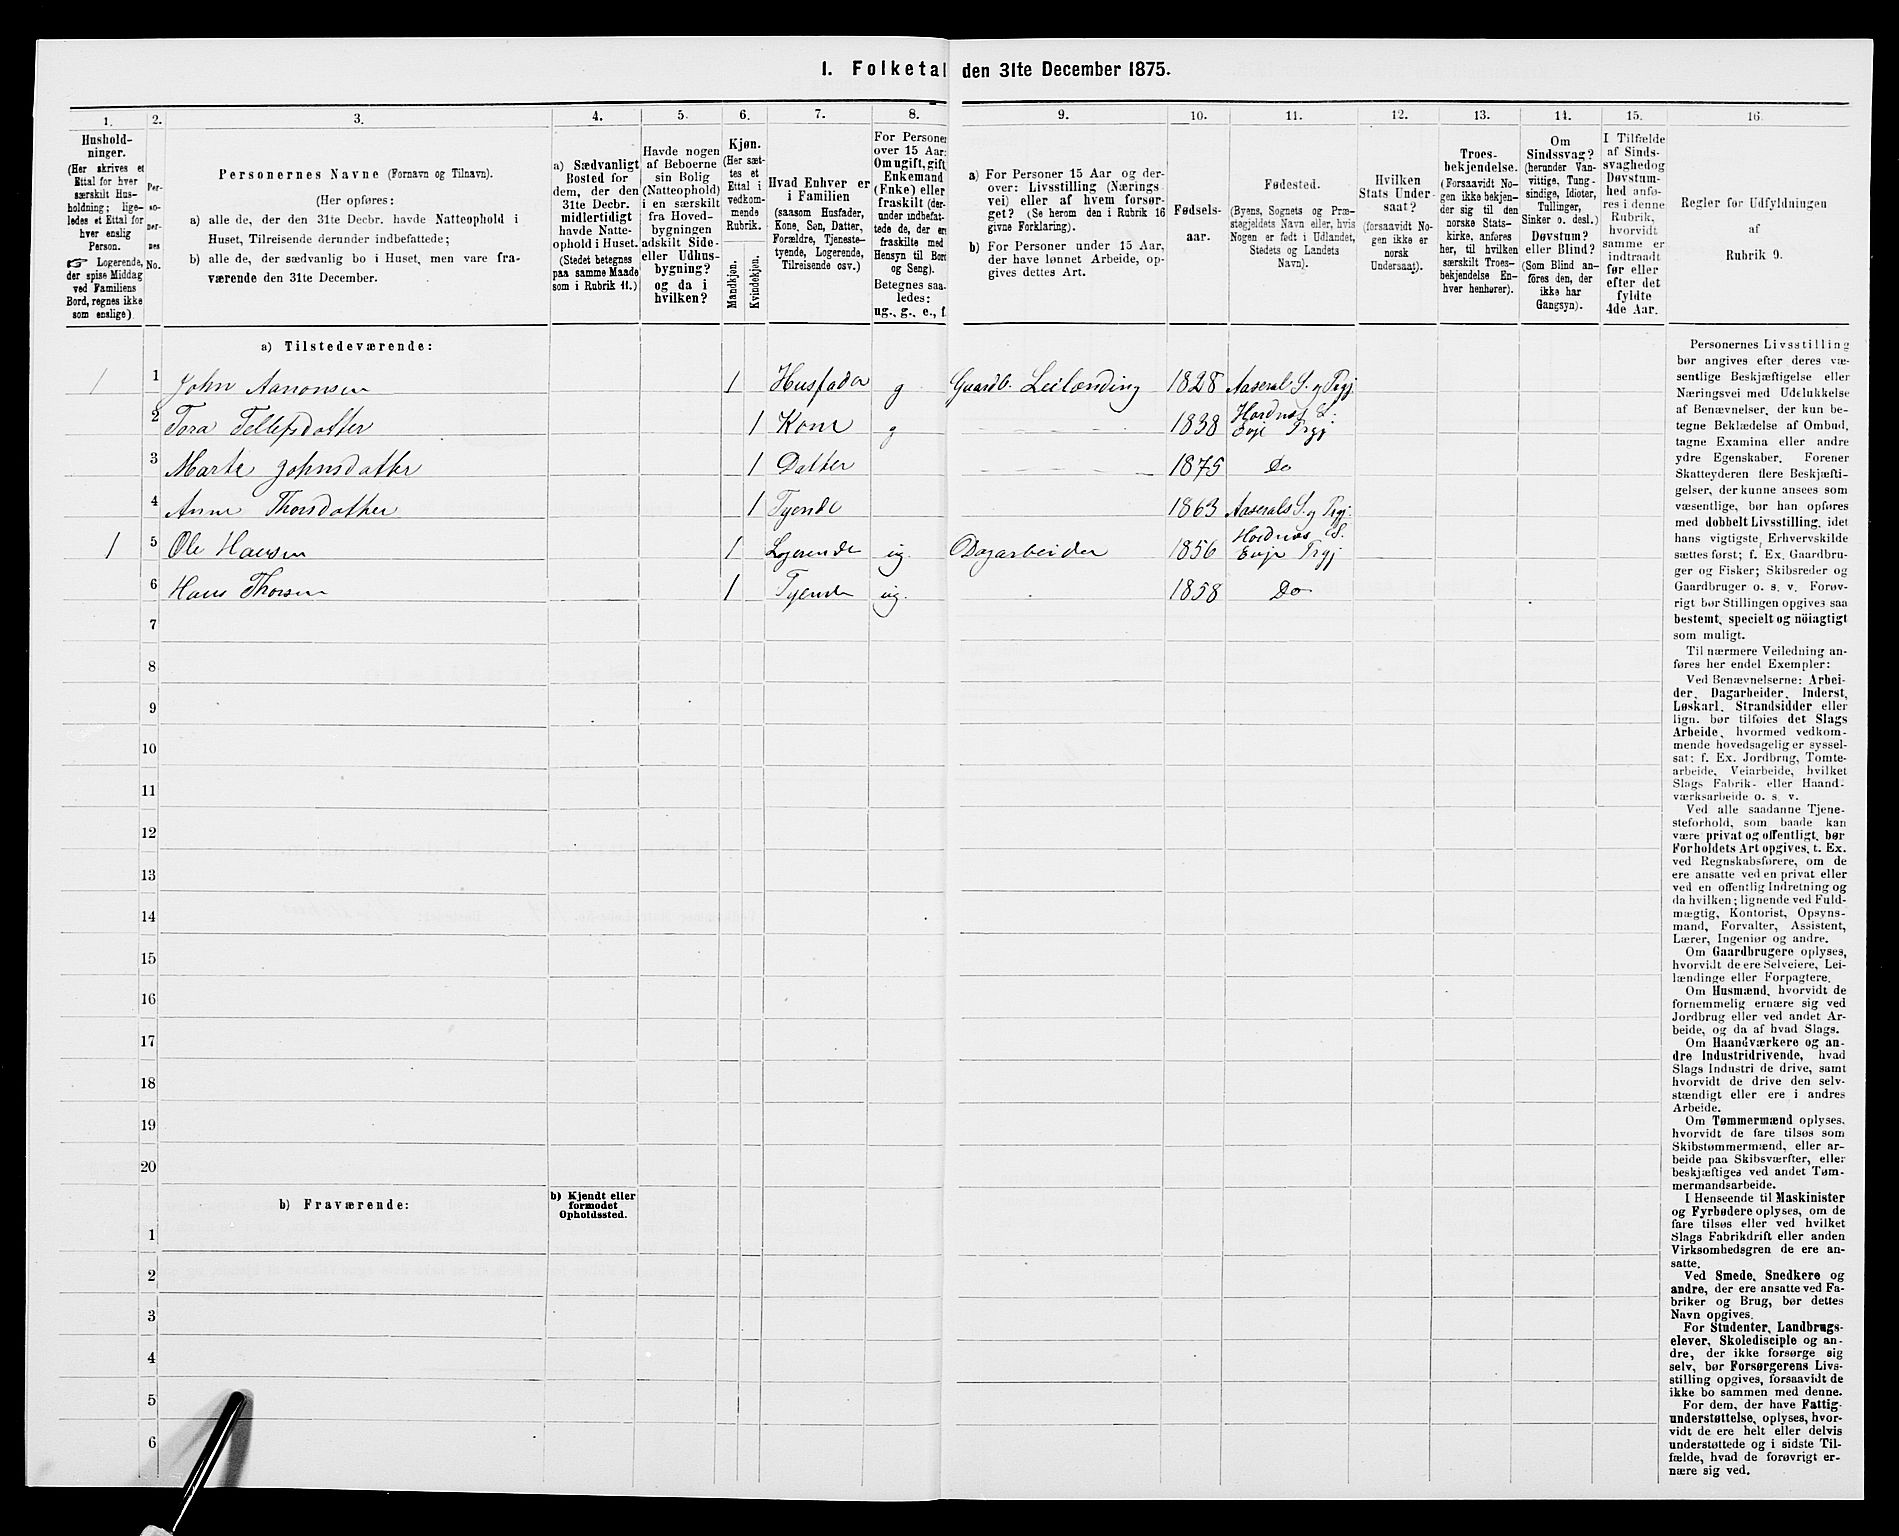 I. Folketal den 31te December 1875.
1. 2. 3. 4. 5. 6. 7. 8. 9. 10. 11. 12. 13. 14. 15. 16.
Hushold-
ninger.
(Her skrives et
Ettal for hver
særskilt Hus-
holdning; lige-
ledes et Ettal for
hver enslig
Person.
☞ Logerende,
der spise Middag
ved Familiens
Bord, regnes ikke
som enslige)
Per-
so-
ner-
nes
No.
Personernes Navne (Fornavn og Tilnavn).
(Her opføres:
a) alle de, der den 31te Decbr. havde Natteophold i
Huset, Tilreisende derunder indbefattede;
b) alle de, der sædvanlig bo i Huset, men vare fra-
værende den 31te December.
a) Sædvanligt
Bosted for
dem, der den
31te Decbr.
midlertidigt
havde Natte-
ophold i Huset.
(Stedet betegnes
paa samme Maade
som i Rubrik 11.)
Havde nogen
af Beboerne
sin Bolig
(Natteophold)
i en særskilt
fra Hoved-
bygningen
adskilt Side-
eller Udhus-
bygning?
og da i
hvilken?
Kjøn.
(Her sæt-
tes et
Ettal i
vedkom-
mende
Rubrik.
Mandkjøn.
Kvindekjøn.
Hvad Enhver er
i Familien
(saasom Husfader,
Kone, Søn, Datter,
Forældre, Tjeneste-
tyende, Logerende,
Tilreisende osv.)
For Personer
over 15 Aar:
Om ugift, gift,
Enkemand
(Enke) eller
fraskilt (der-
under indbefat-
tede de, der ere
fraskilte med
Hensyn til Bord
og Seng).
Betegnes saa-
ledes:
ug., g., e., f.
a) For Personer 15 Aar og der-
over: Livsstilling (Nærings-
vei) eller af hvem forsør-
get? (Se herom den i Rubrik 16
givne Forklaring).
b) For Personer under 15 Aar,
der have lønnet Arbeide, op-
gives dettes Art.
Fødsels-
aar.
Fødested.
(Byens, Sognets og Præ-
stegjeldets Navn eller, hvis
Nogen er født i Udlandet,
Stedets og Landets
Navn).
Hvilken
Stats Under-
saat?
(forsaavidt No-
gen ikke er
norsk
Undersaat).
Troes-
bekjendelse.
(Forsaavidt No-
gen ikke bekjen-
der sig til den
norske Stats-
kirke, anføres
her, til hvilken
særskilt Troes-
bekjendelse En-
hver henhører).
Om
Sindssvag?
(herunder Van-
vittige, Tung-
sindige, Idioter,
Tullinger,
Sinker o. desl.)
Døvstum?
eller Blind?
(Som Blind an-
føres den, der
ikke har
Gangsyn).
I Tilfælde
af Sinds-
svaghed og
Døvstum-
hed anfø-
res i denne
Rubrik,
hvorvidt
samme er
indtraadt
før eller
efter det
fyldte
4de Aar.
Regler for Udfyldningen
af
Rubrik 9.
a) Tilstedeværende:
1 1 John Aanonsen 1 Husfader g Gaardb. Leilænding 1828 Aaserals S. og Prgj.
2 Tora Tellefsdatter 1 Kone g 1838 Hordnes S. Evje Prgj
3 Marte Johnsdatter 1 Datter 1875 Do
4 Anne Thorsdatter 1 Tyende 1863 Aaserals S. og Prgj.
1 5 Ole Hansen 1 Logerende ug. Dagarbeider 1856 Hordnes S. Evje Prgj
6 Hans Thorsen 1 Tyende ug. 1858 Do
7
8
9
10
11
12
13
14
15
16
17
18
19
20
b) Fraværende:
b) Kjendt eller
formodet
Opholdssted.
1
2
3
4
5
6
Personernes Livsstilling
bør angives efter deres væ-
sentlige Beskjæftigelse eller
Næringsvei med Udelukkelse
af Benævnelser, der kun be-
tegne Beklædelse af Ombud,
tagne Examina eller andre
ydre Egenskaber. Forener
Skatteyderen flere Beskjæfti-
gelser, der kunne ansees som
væsentlige, bør han opføres
med dobbelt Livsstilling, idet
hans vigtigste Erhvervskilde
sættes først; f. Ex. Gaardbru-
ger og Fisker; Skibsreder og
Gaardbruger o. s. v. Forøv-
rigt bør Stillingen opgives saa
bestemt, specielt og nöiagtigt
som muligt.
Til nærmere Veiledning an-
føres her endel Exempler:
Ved Benævnelserne: Arbei-
der, Dagarbeider, Inderst,
Løskarl, Strandsidder eller
lign. bør tilføies det Slags
Arbeide, hvormed vedkom-
mende hovedsagelig er syssel-
sat; f. Ex. Jordbrug, Tomte-
arbeide, Veiarbeide, hvilket
Slags Fabrik- eller Haand-
værksarbeide o. s. v.
Ved alle saadanne Tjene-
steforhold, som baade kan
være privat og offentligt, bør
Forholdets Art opgives, t. Ex.
ved Regnskabsførere, om de
ere ansatte ved en privat eller
ved en offentlig Indretning og
da hvilken; lignende ved Fuld-
mægtig, Kontorist, Opsyns-
mand, Forvalter, Assistent,
Lærer, Ingeniør og andre.
Om Gaardbrugere oplyses,
hvorvidt de ere Selveiere, Lei-
lændinge eller Forpagtere.
Om Husmænd, hvorvidt de
fornemmelig ernære sig ved
Jordbrug eller ved andet Ar-
beide, og da af hvad Slags.
Om Haandværkere og an-
dre Industridrivende, hvad
Slags Industri de drive, samt
hvorvidt de drive den selv-
stændigt eller ere i andres
Arbeide.
Om Tømmermænd oplyses,
hvorvidt de fare tilsøs som
Skibstømmermænd, eller ar-
beide paa Skibsværfter, eller
beskjæftiges ved andet Tøm-
mermandsarbeide.
I Henseende til Maskinister
og Fyrbødere oplyses, om de
fare tilsøs eller ved hvilket
Slags Fabrikdrift eller anden
Virksomhedsgren de ere an-
satte.
Ved Smede, Snedkere og
andre, der ere ansatte ved Fa-
briker og Brug, bør dettes
Navn opgives.
For Studenter, Landbrugs-
elever, Skoledisciple og an-
dre, der ikke forsørge sig
selv, bør Forsørgerens Livs-
stilling opgives, forsaavidt de
ikke bo sammen med denne.
For dem, der have Fattig-
understøttelse, oplyses, hvor-
vidt de ere helt eller delvis
understøttede og i sidste Til-
fælde, hvad de forøvrigt er-
nære sig ved.